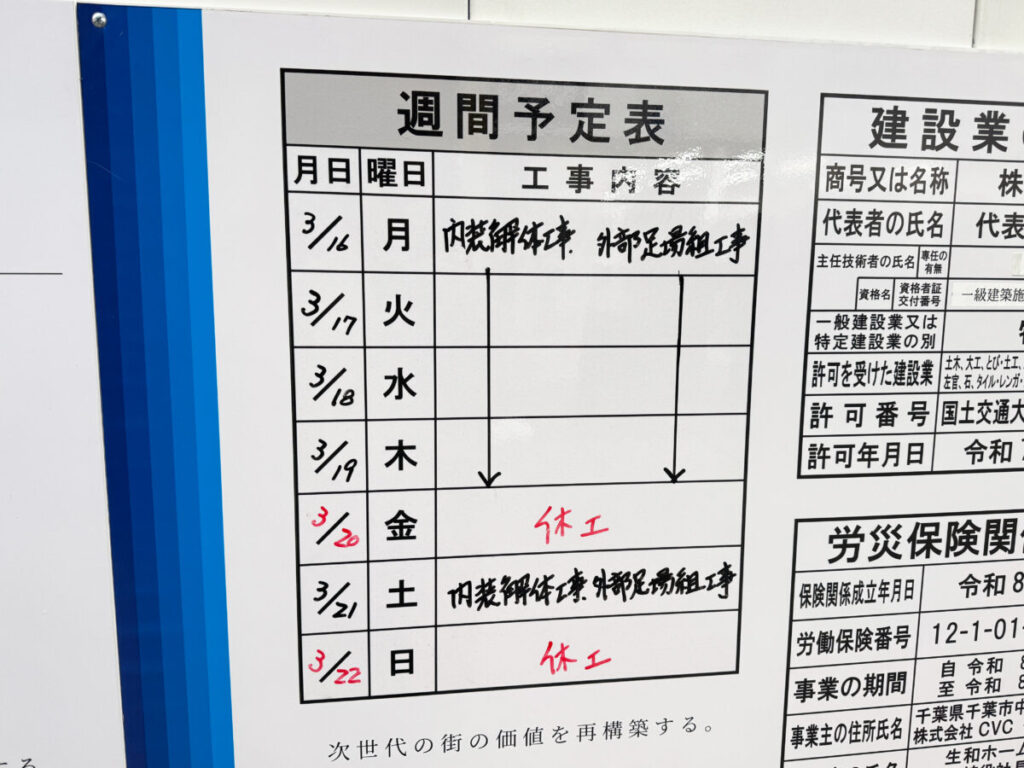 週間予定表
月日 曜日 工事内容
3/16 月 内装解体工事 外部足場組工事
3/17 火
3/18 水
3/19 木
3/20 金 休工
3/21 土 内装解体工事 外部足場組工事
3/22 日 休工
次世代の街の価値を再構築する。
建設業の
商号又は名称 株
代表者の氏名 代表
主任技術者の氏名 専任の有無
資格名 資格者証交付番号 一級建築施
一般建設業又は
特定建設業の別
許可を受けた建設業 土木、大工、とび・土工、
左官、石、タイル・レンガ・
許可番号 国土交通大
許可年月日 令和7
労災保険関係
保険関係成立年月日 令和8
労働保険番号 12-1-01-
事業の期間 自 令和 8
至 令和 8
事業主の住所氏名 千葉県千葉市中
株式会社CVC
生和ホーム
する